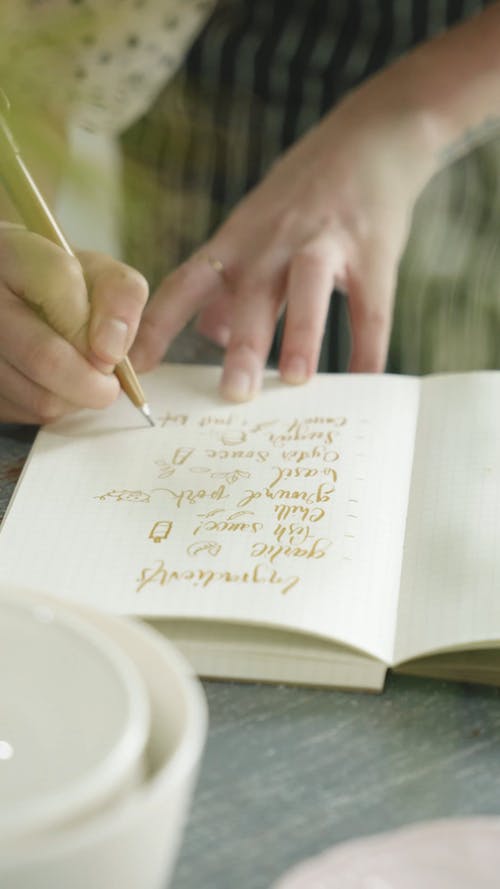 Ingredients
- garlic
- fish sauce!
- chilli
- ground pork
- basil
- Oyster sauce
- Sugar
- Carrot - just bit